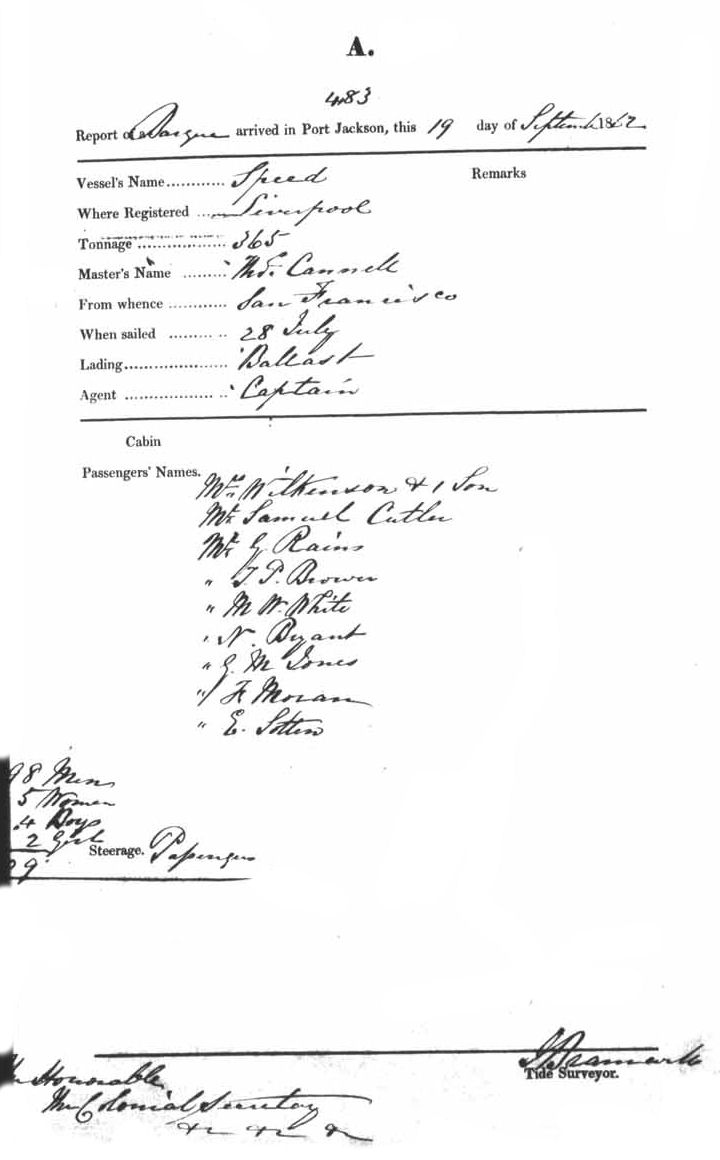 A.
483
Report of Barque arrived in Port Jackson, this 19 day of September 1862
Vessel's Name............ Speed Remarks
Where Registered ...... Liverpool
Tonnage .................. 365
Master's Name ......... Thos. Cannell
From whence ............ San Francisco
When sailed ......... .. 28 July
Lading..................... Ballast
Agent .................. .. Captain
Cabin
Passengers' Names.
Mrs. Wilkinson & 1 Son
Mr. Samuel Cutler
Mr. G Rains
" T. P. Brower
" M W. White
" N. Bryant
" G. M Jones
" F Moran
" E.
98 Men
5 Women
4 Boys
2 Girls
Steerage. Passengers
09
Tide Surveyor.
The Honorable
The Colonial Secretary
&c &c &c